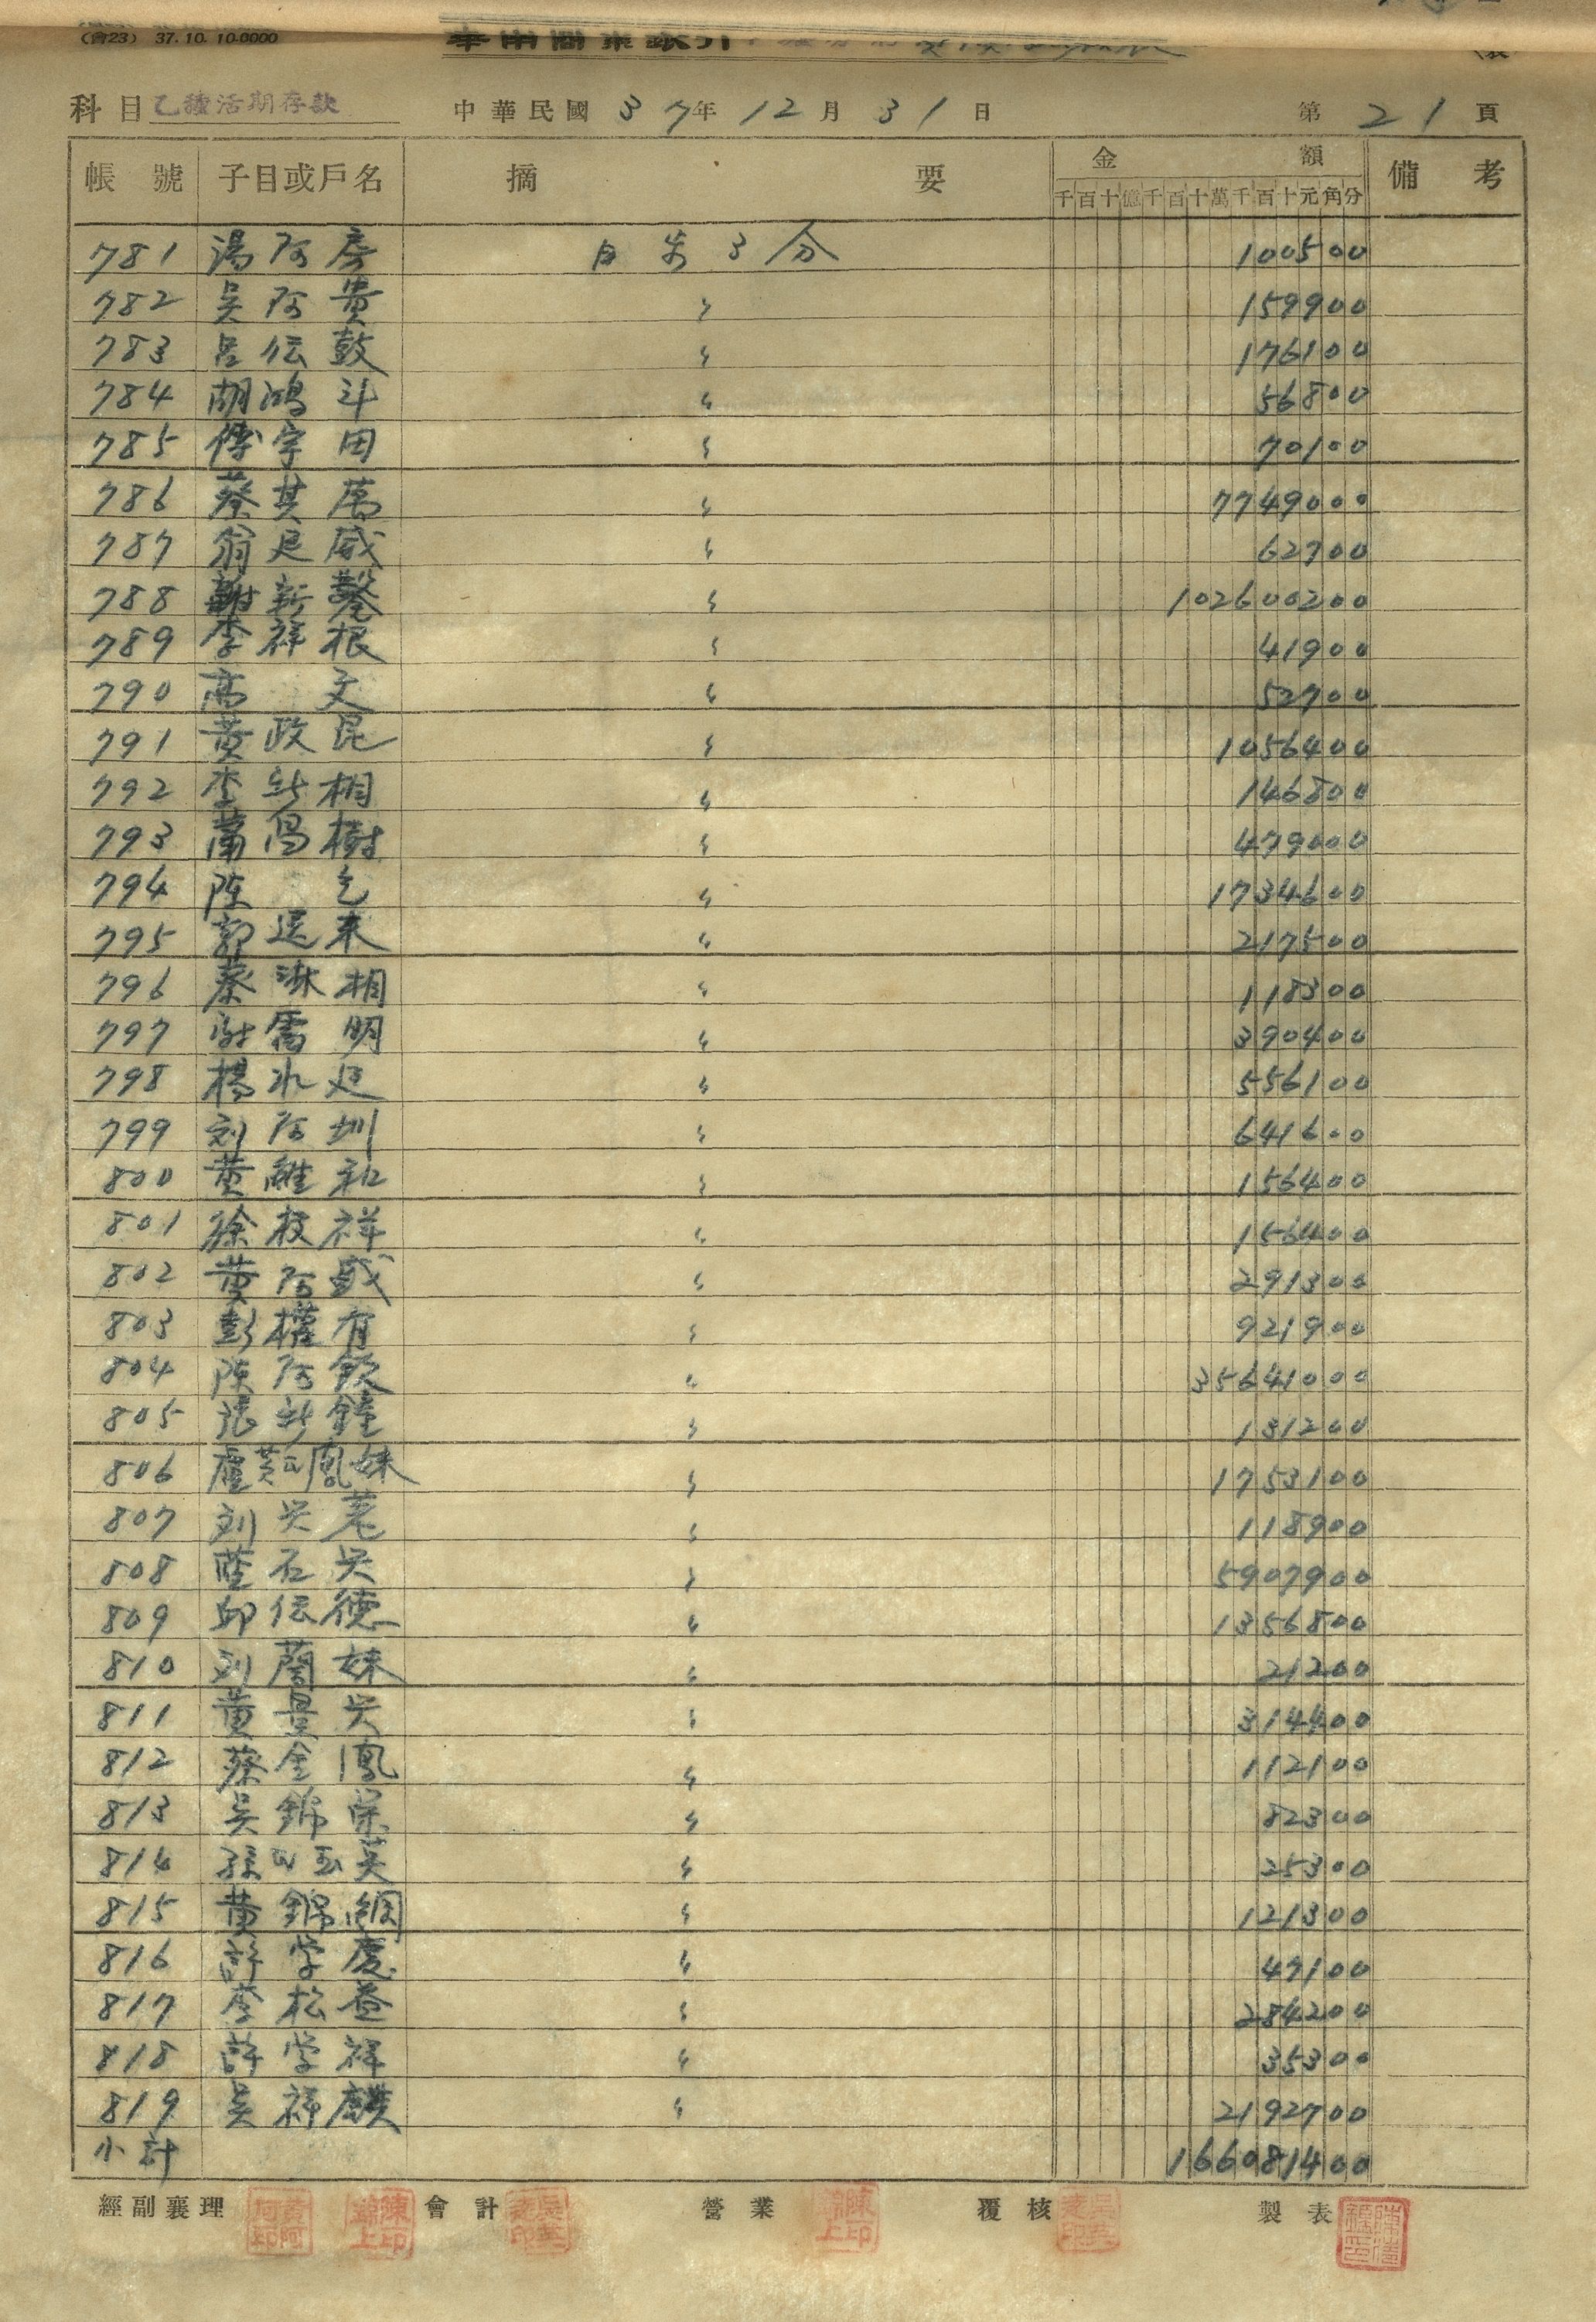 (會23) 37.10.10.0000
科目 乙種活期存款 中華民國 37年 12月 31日 第 21 頁
帳號 子目或戶名 摘要 金額 備考
千百十億千百十萬千百十元角分
781 湯阿房 日步3分 100500
782 吳阿貴 〃 159900
783 呂伝鼓 〃 176100
784 胡鴻斗 〃 56800
785 傅宇田 〃 70100
786 蔡其萬 〃 7749000
787 翁足威 〃 62700
788 謝新 〃 102600200
789 李祥根 〃 41900
790 高文 〃 52700
791 黃政昆 〃 1056400
792 李新相 〃 146800
793 蕭倡樹 〃 479000
794 陳乞 〃 1734600
795 郭送来 〃 217500
796 蔡淋相 〃 118300
797 謝喬明 〃 390400
798 楊水廷 〃 556100
799 刘阿圳 〃 641600
800 黃維和 〃 156400
801 徐枝祥 〃 156400
802 黃阿戲 〃 291300
803 彭權有 〃 921900
804 陳阿欽 〃 35641000
805 張新鐘 〃 131200
806 盧黃氏鳳妹 〃 1753100
807 刘兴 〃 118900
808 藍石兴 〃 5907900
809 邱伝德 〃 1356800
810 刘蘭妹 〃 21200
811 黃景兴 〃 314400
812 蔡金鳳 〃 112100
813 吳錦栄 〃 82300
814 孫氏玉英 〃 25300
815 黃錦綢 〃 121300
816 許学慶 〃 47100
817 李松益 〃 284200
818 許学祥 〃 35300
819 吳福麒 〃 2192700
小計 166081400
經副襄理 會計 營業 覆核 製表